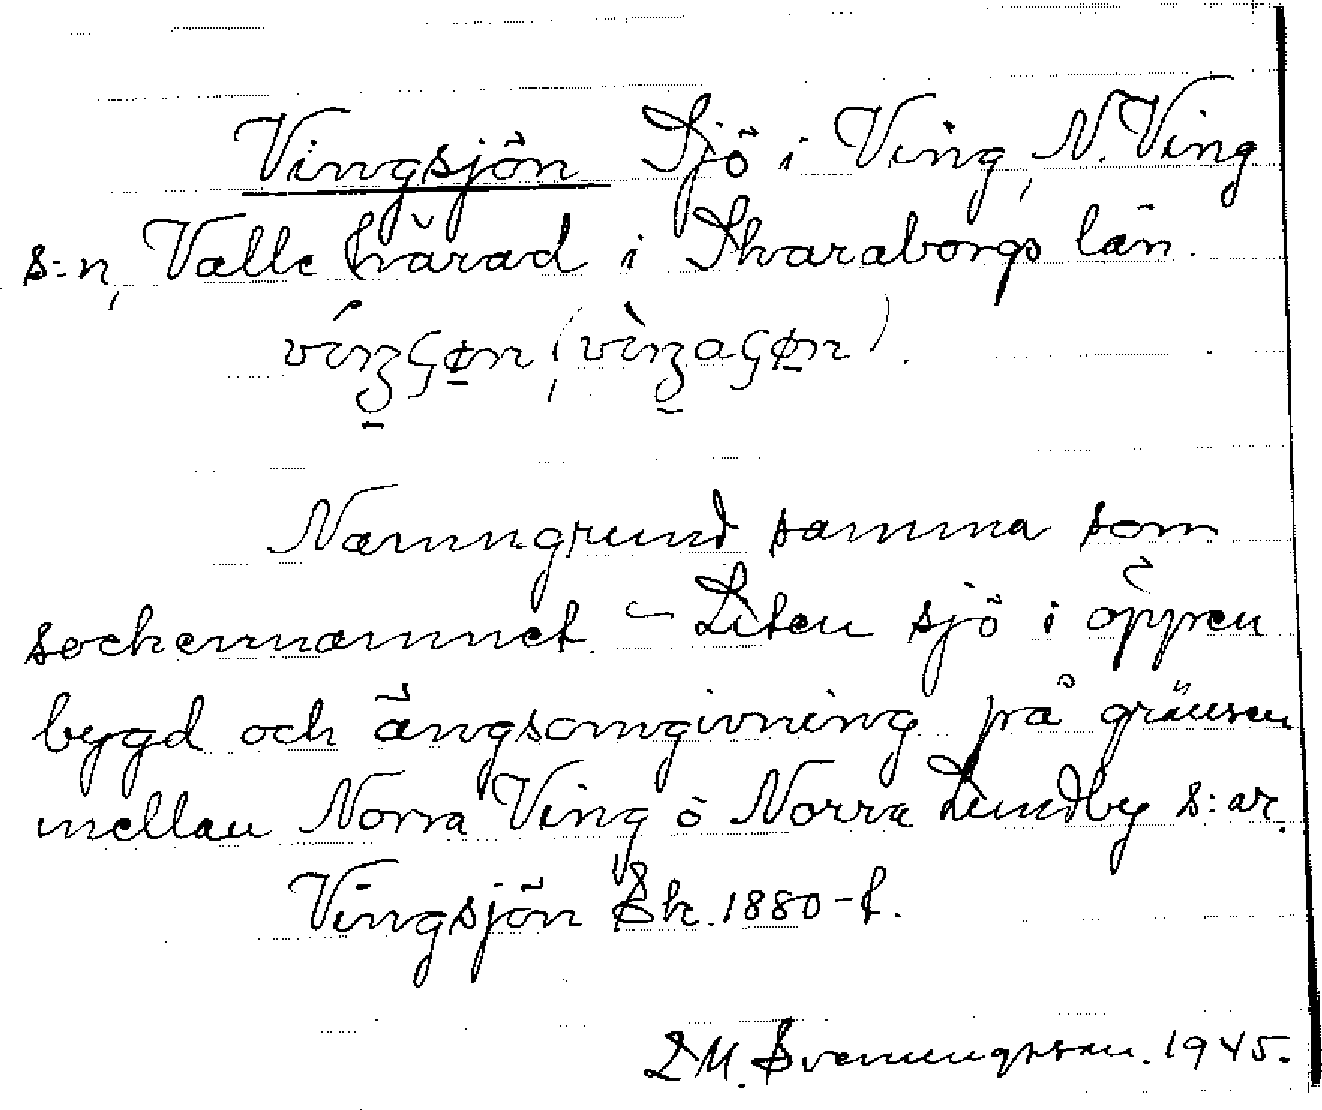 Vingsjön Sjö i Ving, N. Ving
s:n, Valle härad i Skaraborgs län.
Namngrund samma som
sockennamnet. – Liten sjö i öppen
bygd och ängsomgivning på gränsen
mellan Norra Ving o Norra Lundby s:ar.
Vingsjön Ek. 1880-t.
L M. Svenungsson. 1945.